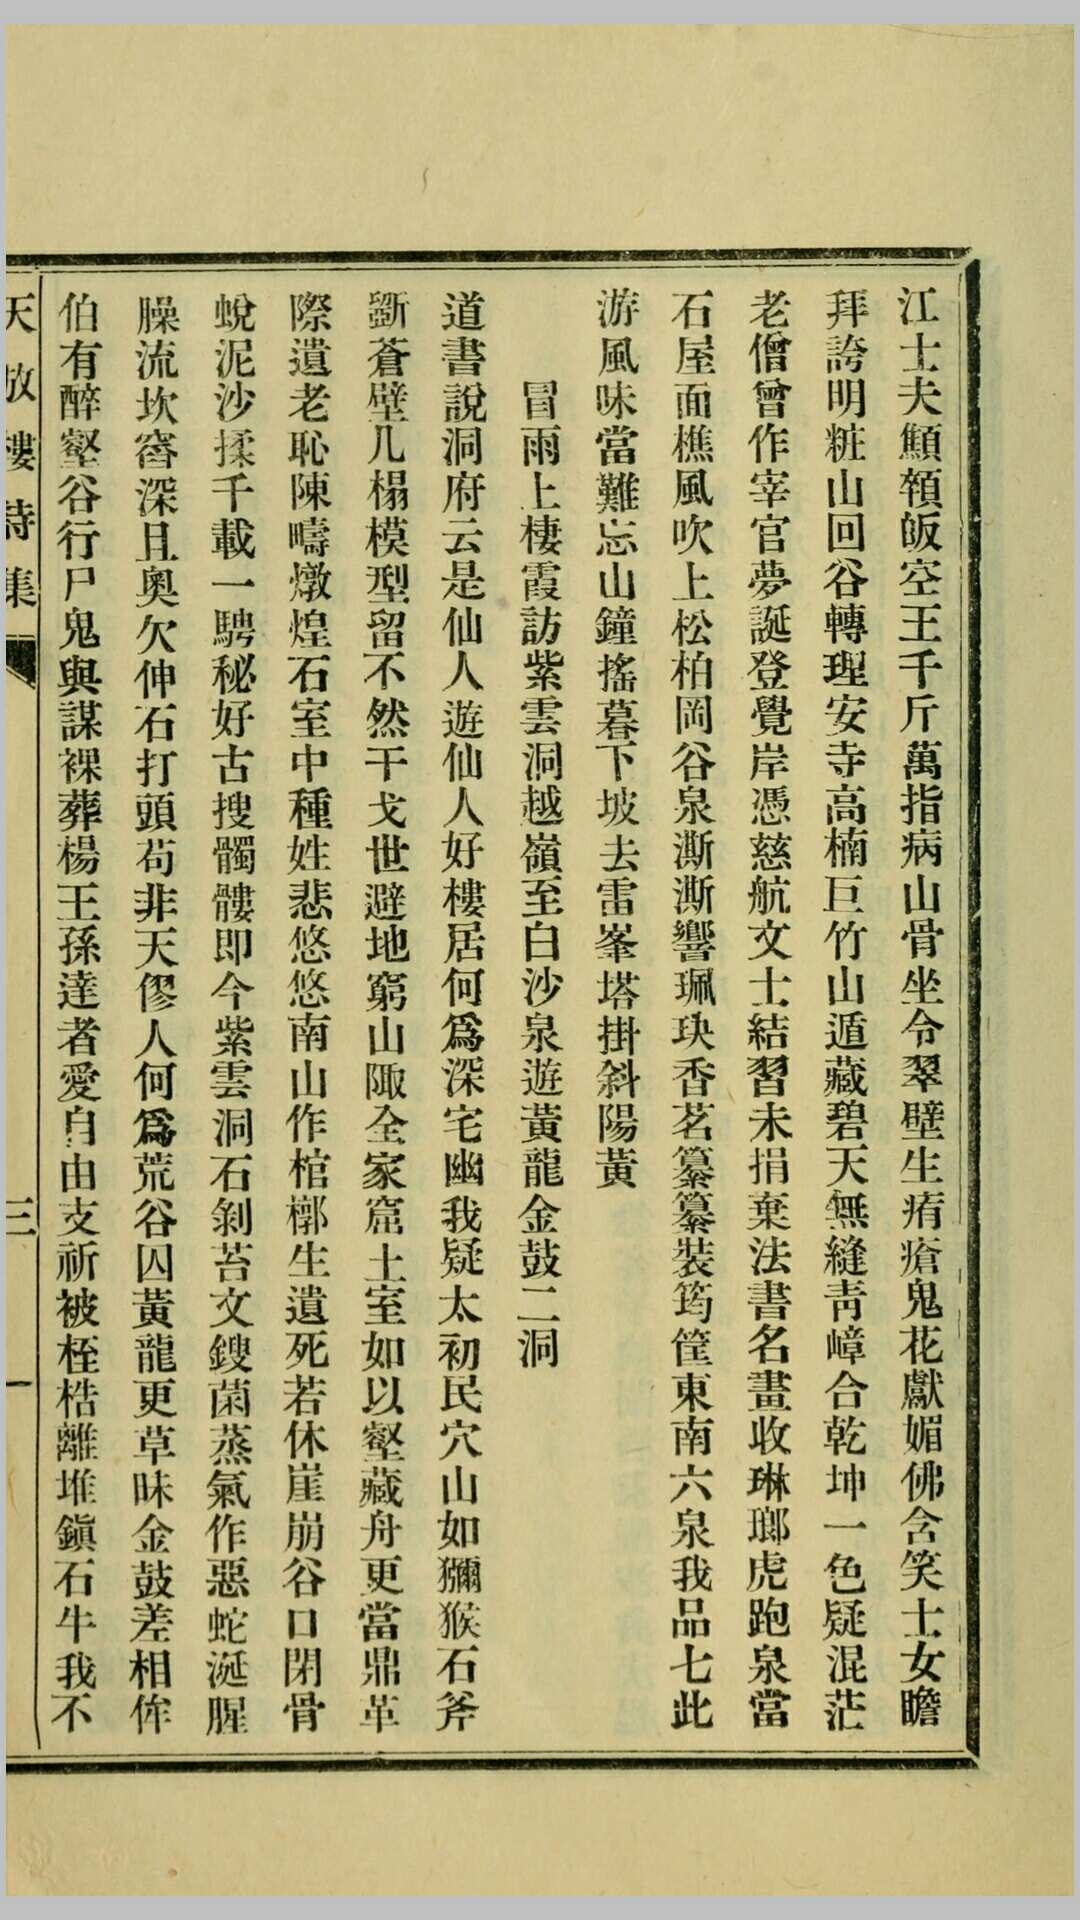 江士夫顦顇皈空王千斤萬指病山骨坐令翠壁生痏瘡鬼花獻媚佛含笑士女瞻
拜誇明粧山回谷轉理安寺高楠巨竹山遁藏碧天無縫靑嶂合乾坤一色疑混茫
老僧曾作宰官夢誕登覺岸憑慈航文士結習未捐棄法書名畫收琳瑯虎跑泉當
石屋面樵風吹上松柏岡谷泉澌澌響珮玦香茗纂纂裝筠筐東南六泉我品七此
游風味當難忘山鐘搖暮下坡去雷峯塔掛斜陽黃
冒雨上棲霞訪紫雲洞越嶺至白沙泉遊黃龍金鼓二洞
道書說洞府云是仙人遊仙人好樓居何爲深宅幽我疑太初民穴山如獼猴石斧
斵蒼壁几榻模型留不然干戈世避地窮山陬全家窟土室如以壑藏舟更當鼎革
際遺老恥陳疇燉煌石室中種姓悲悠悠南山作棺槨生遺死若休崖崩谷口閉骨
蛻泥沙揉千載一騁秘好古搜髑髏即今紫雲洞石剝苔文鎪菌蒸氣作惡蛇涎腥
臊流坎窞深且奧欠伸石打頭苟非天僇人何爲荒谷囚黃龍更草昧金鼓差相侔
伯有醉壑谷行尸鬼與謀裸葬楊王孫達者愛自由支祈被桎梏離堆鎭石牛我不
天放樓詩集
三
一